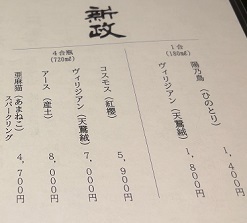 新政
1合
(180㎖)
陽乃鳥 (ひのとり) 1,400円
ヴィリジアン (天鵞絨) 1,800円
4合瓶
(720㎖)
コスモス (紅櫻) 5,900円
ヴィリジアン (天鵞絨) 7,000円
アース (産土) 8,000円
亜麻猫 (あまねこ)
スパークリング 4,700円